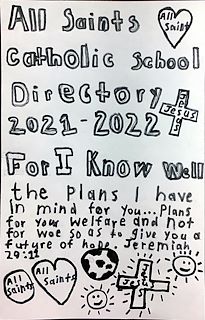 All Saints
All Saints
Catholic School
Directory
Jesus
2021-2022
For I Know Well
the Plans I have
in mind for you... Plans
for your welfare and not
for woe so as to give you a
future of hope. Jeremiah
29:11
All Saints
All Saints
Jesus